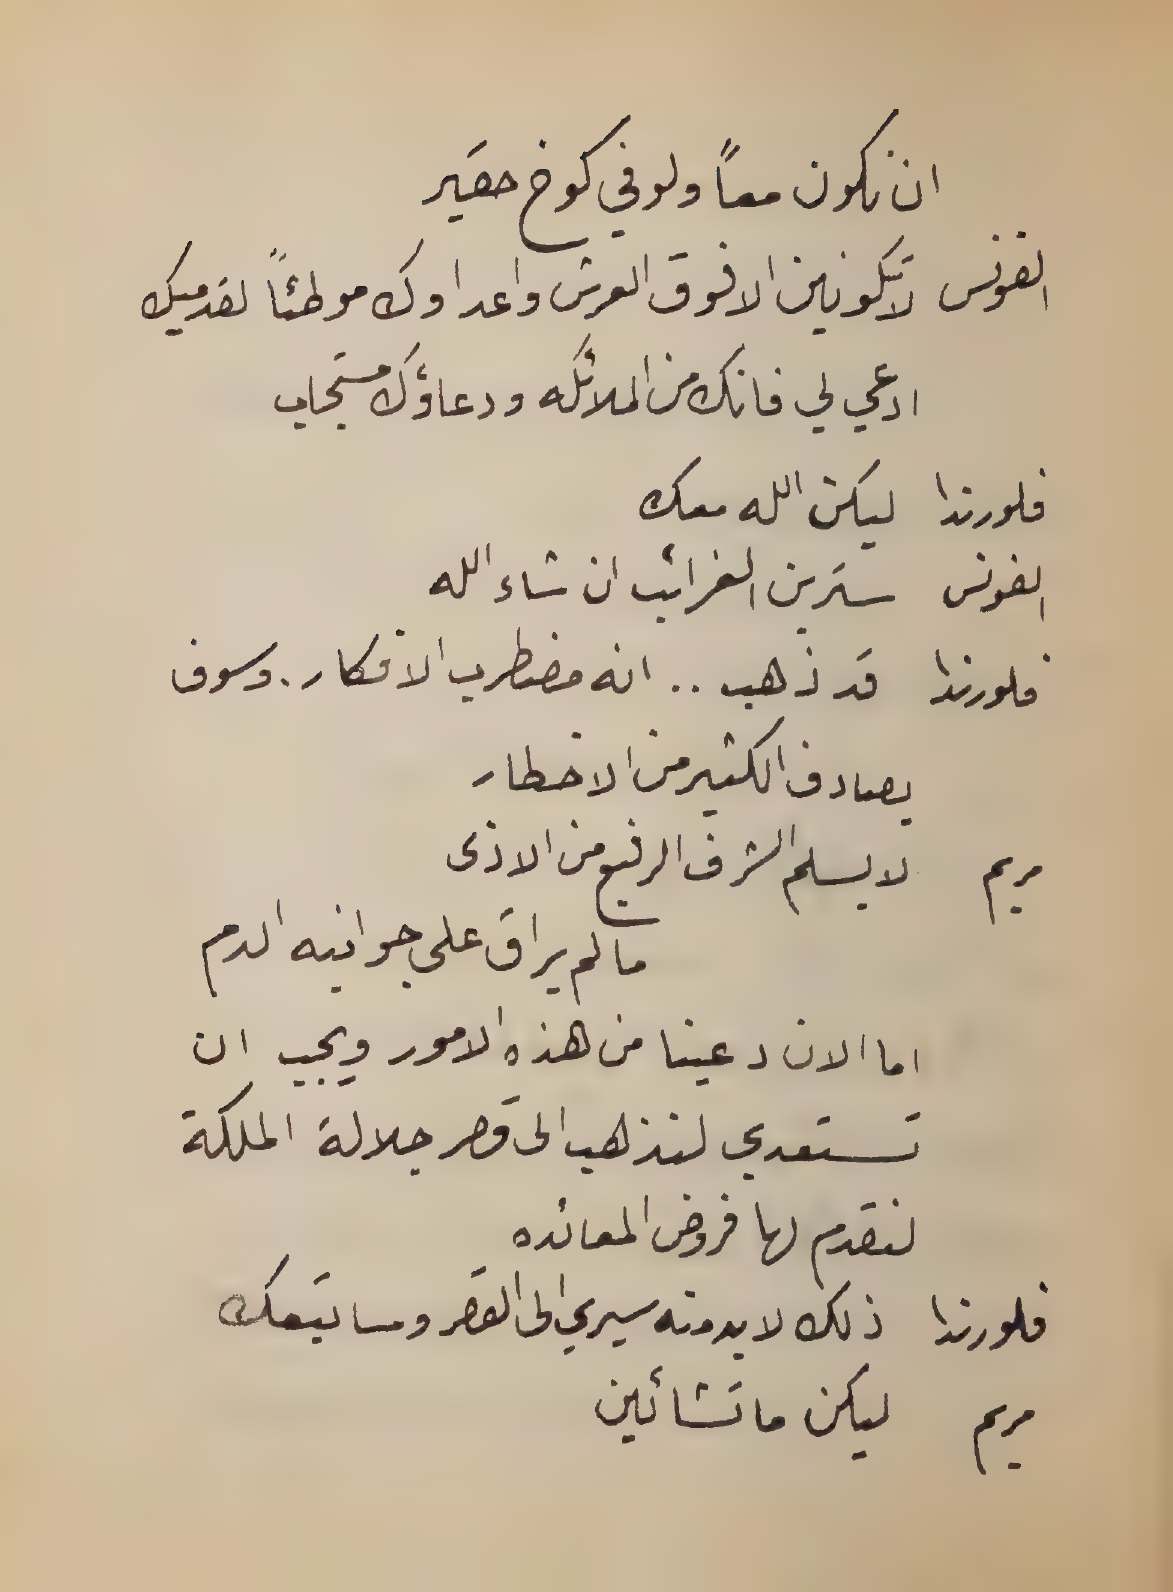 ان نكون معاً ولو في كوخ حقير
الفونس لا تكونين الا فوق العرش واعداوك موطئاً لقدميك
ادعي لي فانك من الملائكه ودعاؤك مستجاب
فلورندا ليكن الله معك
الفونس سترين الغرائب ان شاء الله
فلورندا قد ذهب .. انه مضطرب الافكار. وسوف
يصادف الكثير من الاخطار
مريم لا يسلم الشرف الرفيع من الاذى
ما لم يراق على جوانبه الدم
اما الان دعينا من هذه الامور ويجب ان
تستعدي لنذهب الى قصر جلالة الملكة
لنقدم لها فروض المعائده
فلورندا ذلك لا بد منه سيري الى القصر وسا تبعك
مريم ليكن ما تشائين